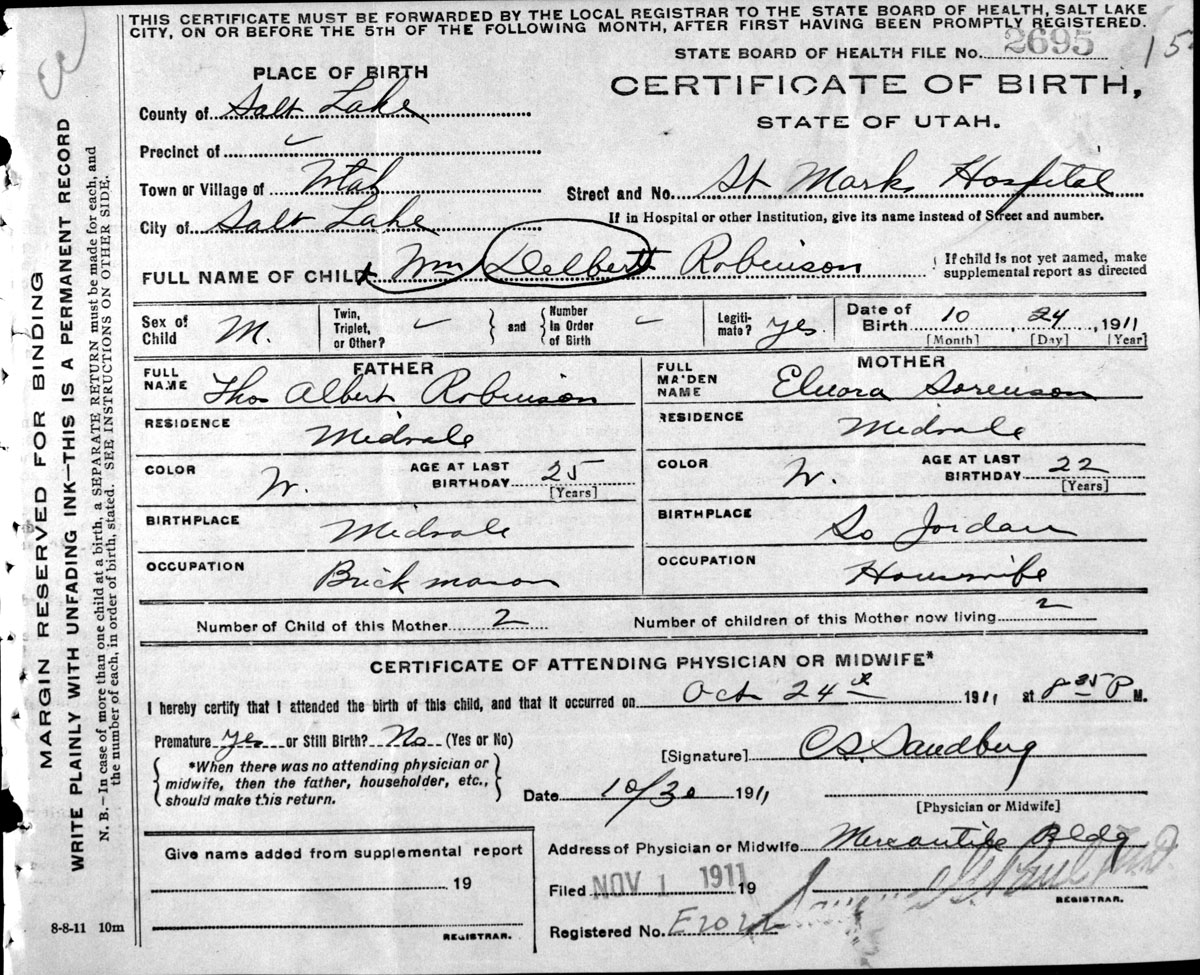 THIS CERTIFICATE MUST BE FORWARDED BY THE LOCAL REGISTRAR TO THE STATE BOARD OF HEALTH, SALT LAKE
CITY, ON OR BEFORE THE 5TH OF THE FOLLOWING MONTH, AFTER FIRST HAVING BEEN PROMPTLY REGISTERED.
STATE BOARD OF HEALTH FILE No. 2695
15
PLACE OF BIRTH
CERTIFICATE OF BIRTH,
STATE OF UTAH.
County of Salt Lake
Precinct of
Town or Village of Utah
Street and No. St Marks Hospital
City of Salt Lake
If in Hospital or other Institution, give its name instead of Street and number.
FULL NAME OF CHILD Wm Delbert Robinson
If child is not yet named, make
supplemental report as directed
Sex of Child M.
Twin, Triplet, or Other?
and
Number in Order of Birth
Legiti-mate? yes.
Date of Birth 10, 24, 1911
[Month] [Day] [Year]
FATHER
MOTHER
FULL NAME Thos Albert Robinson
FULL MAIDEN NAME Elnora Sorenson
RESIDENCE Midvale
RESIDENCE Midvale
COLOR W. AGE AT LAST BIRTHDAY 25 [Years]
COLOR W. AGE AT LAST BIRTHDAY 22 [Years]
BIRTHPLACE Midvale
BIRTHPLACE So Jordan
OCCUPATION Brick mason
OCCUPATION Housewife
Number of Child of this Mother 2
Number of children of this Mother now living 2
CERTIFICATE OF ATTENDING PHYSICIAN OR MIDWIFE*
I hereby certify that I attended the birth of this child, and that it occurred on Oct 24th 1911, at 8 35 P M.
Premature yes or Still Birth? No (Yes or No)
*When there was no attending physician or
midwife, then the father, householder, etc.,
should make this return.
[Signature] C S. Sandberg
Date 10/30 1911
[Physician or Midwife]
Give name added from supplemental report
19
REGISTRAR.
Address of Physician or Midwife Mercantile Bldg
Filed NOV 1 1911 19
REGISTRAR.
Registered No.
8-8-11 10m
MARGIN RESERVED FOR BINDING
WRITE PLAINLY WITH UNFADING INK—THIS IS A PERMANENT RECORD
N. B.—In case of more than one child at a birth, a SEPARATE RETURN must be made for each, and
the number of each, in order of birth, stated. SEE INSTRUCTIONS ON OTHER SIDE.